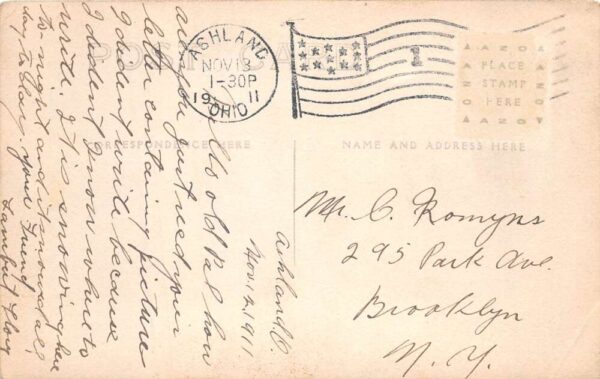 POST CARD
ASHLAND,
NOV 13
1-30P
19 11
OHIO
1
AZO
PLACE
STAMP
HERE
AZO
CORRESPONDENCE HERE
NAME AND ADDRESS HERE
Ashland, O.
Nov. 12, 1911
Hello old Pal how
are you just rec'd your
letter containing picture
I dident write because
I dident know where to
write. It is snowing here
to-night and it snowed all
day to-day, your Friend
Mr. C. Romyns
295 Park Ave.
Brooklyn
N. Y.